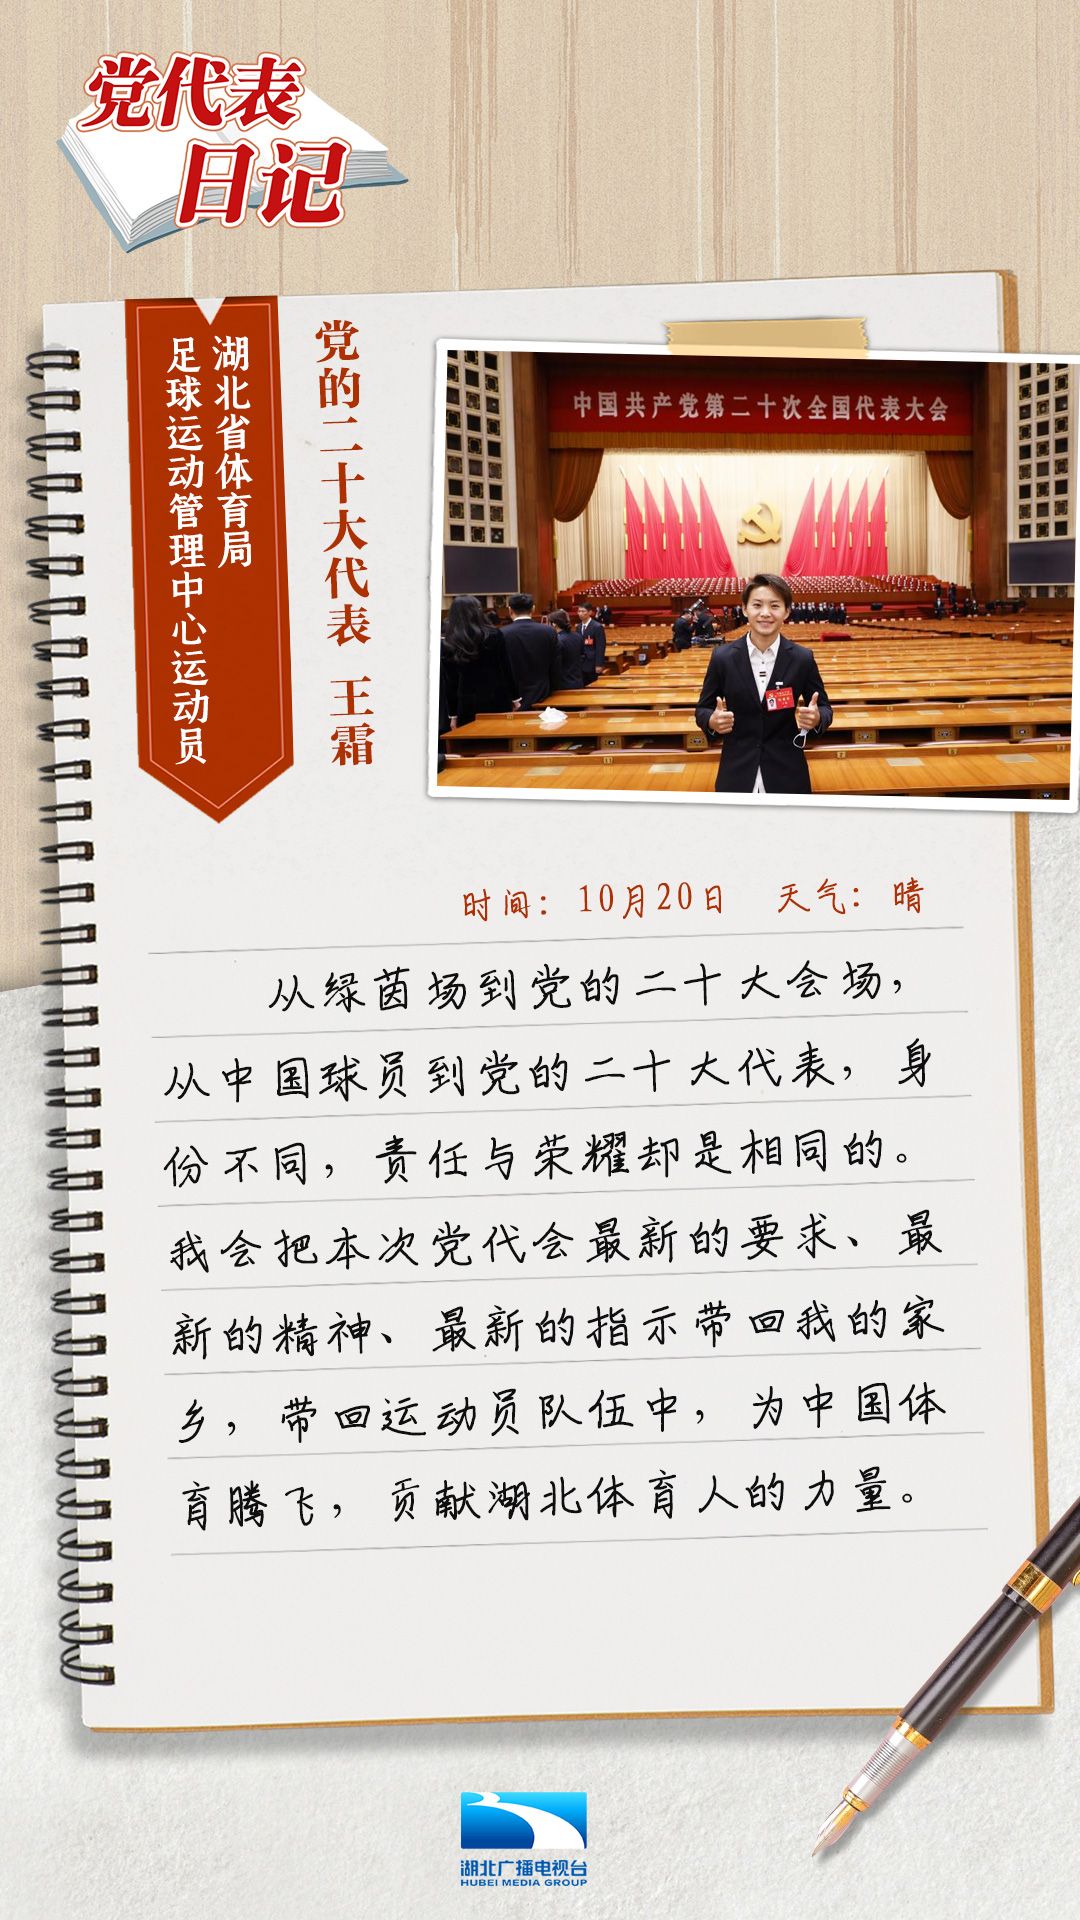 党代表
日记
湖北省体育局
足球运动管理中心运动员
党的二十大代表 王霜
中国共产党第二十次全国代表大会
时间：10月20日 天气：晴
从绿茵场到党的二十大会场，
从中国球员到党的二十大代表，身
份不同，责任与荣耀却是相同的。
我会把本次党代会最新的要求、最
新的精神、最新的指示带回我的家
乡，带回运动员队伍中，为中国体
育腾飞，贡献湖北体育人的力量。
湖北广播电视台
HUBEI MEDIA GROUP